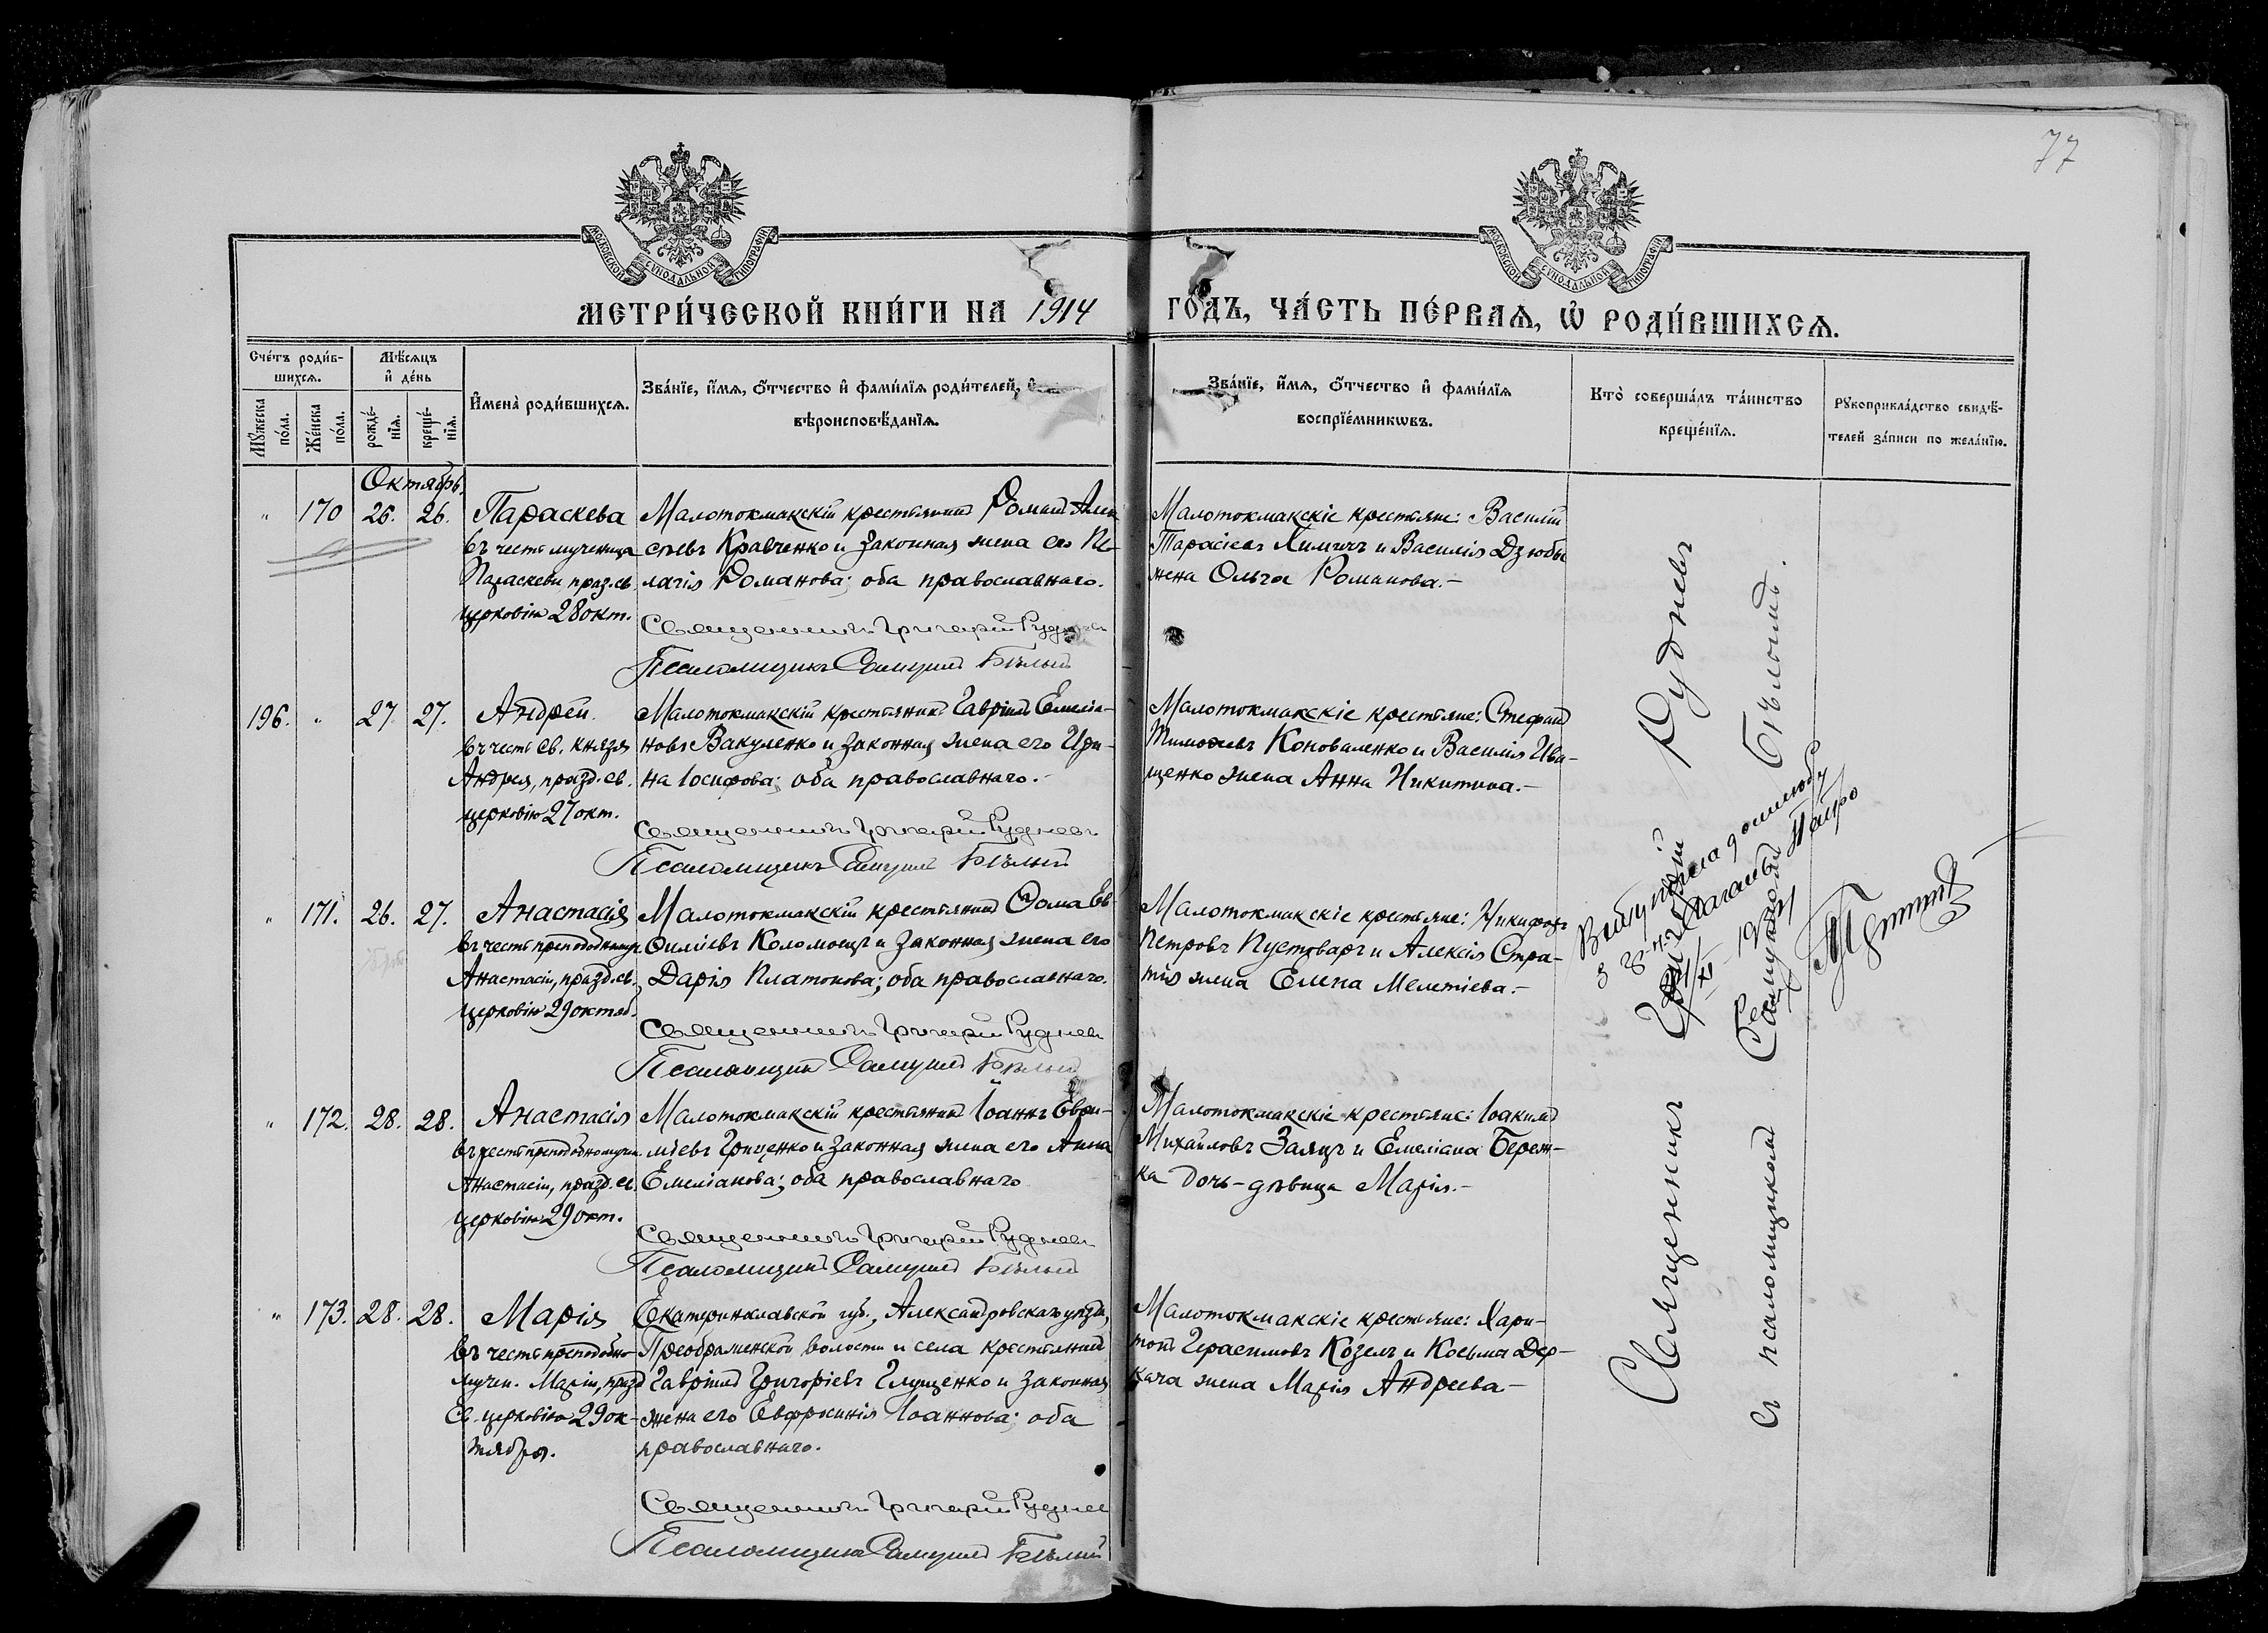 77
МОСКОВСКОЙ СѴНОДАЛЬНОЙ ТИПОГРАФІИ
МОСКОВСКОЙ СѴНОДАЛЬНОЙ ТИПОГРАФІИ
МЕТРИ́ЧЕСКОЙ КНИ́ГИ НА 1914 ГО́ДЪ, ЧА́СТЬ ПЕ́РВАѦ, Ѡ҆ РОДИ́ВШИХСѦ.
Сче́тъ роди́в-
шихсѧ.
Мꙋ́жеска
по́ла.
Же́нска
по́ла.
Мѣ́сѧцъ
и҆ де́нь
рожде́-
нїѧ.
креще́-
нїѧ.
И҆мена̀ роди́вшихсѧ.
Зва́нїе, и҆́мѧ, ѻ҆́тчество и҆ фами́лїѧ роди́телей,
вѣроисповѣ́данїѧ.
Зва́нїе, и҆́мѧ, ѻ҆́тчество и҆ фами́лїѧ
воспрїе́мникѡвъ.
Кто̀ соверша́лъ та́инство
креще́нїѧ.
Рꙋкоприкла́дство свидѣ́-
телей за́писи по жела́нїю.
Октябрь.
" 170 26. 26. Параскева
въ честь мученица
Параскеви, празд. св.
церковію 28 окт.
Малотокмакскій крестьянинъ Романъ Алек
сѣевъ Кравченко и законная жена его Пе-
лагія Романова; оба православнаго.
Священникъ Григорій Рудневъ
Псаломщикъ Самуилъ Бѣлый
Малотокмакскіе крестьяне: Василій
Тарасіевъ Химичъ и Василія Дзюбы
жена Ольга Романова.-
196. " 27 27. Андрей.
въ честь св. князя
Андрея, празд. св.
церковію 27 окт.
Малотокмакскій крестьянинъ Гавріилъ Емелія-
новъ Вакуленко и законная жена его Ири-
на Іосифова; оба православнаго.-
Священникъ Григорій Рудневъ
Псаломщикъ Самуилъ Бѣлый
Малотокмакскіе крестьяне: Стефанъ
Тимоѳеевъ Коноваленко и Василія Ива-
щенко жена Анна Никитина.-
" 171. 26. 27. Анастасія
въ честь преподобномуч.
Анастасіи, празд. св.
церковію 29 октяб.
Малотокмакскій крестьянинъ Ѳома Ев-
ѳиміевъ Коломоецъ и законная жена его
Дарія Платонова; оба православнаго.
Священникъ Григорій Рудневъ
Псаломщикъ Самуилъ Бѣлый
Малотокмакскіе крестьяне: Никифоръ
Петровъ Пустоваръ и Алексія Стра-
тія жена Елена Мелетіева.-
" 172. 28. 28. Анастасія
въ честь преподобномучен.
Анастасіи, празд. св.
церковію 29 окт.
Малотокмакскій крестьянинъ Іоаннъ Евѳи-
міевъ Гриценко и законная жена его Анна
Емеліанова; оба православнаго
Священникъ Григорій Рудневъ
Псаломщикъ Самуилъ Бѣлый
Малотокмакскіе крестьяне: Іоакимъ
Михайловъ Заяцъ и Емеліана Береж-
ка дочь-дѣвица Марія.-
" 173. 28. 28. Марія
въ честь преподобно-
мучен. Маріи, празд
св. церковію 29 ок-
тября.
Екатеринславской губ., Александровскаго уѣзда,
Преображенской волости и села крестьянинъ
Гавріилъ Григоріевъ Глущенко и законная
жена его Евфросинія Іоаннова; оба
православнаго.
Священникъ Григорій Рудневъ
Псаломщикъ Самуилъ Бѣлый
Малотокмакскіе крестьяне: Хари-
тонъ Герасимовъ Козелъ и Косьмы Дер-
кача жена Марія Андреева-
Священникъ Григорій Рудневъ
съ псаломщикомъ Самуиломъ Бѣлымъ.